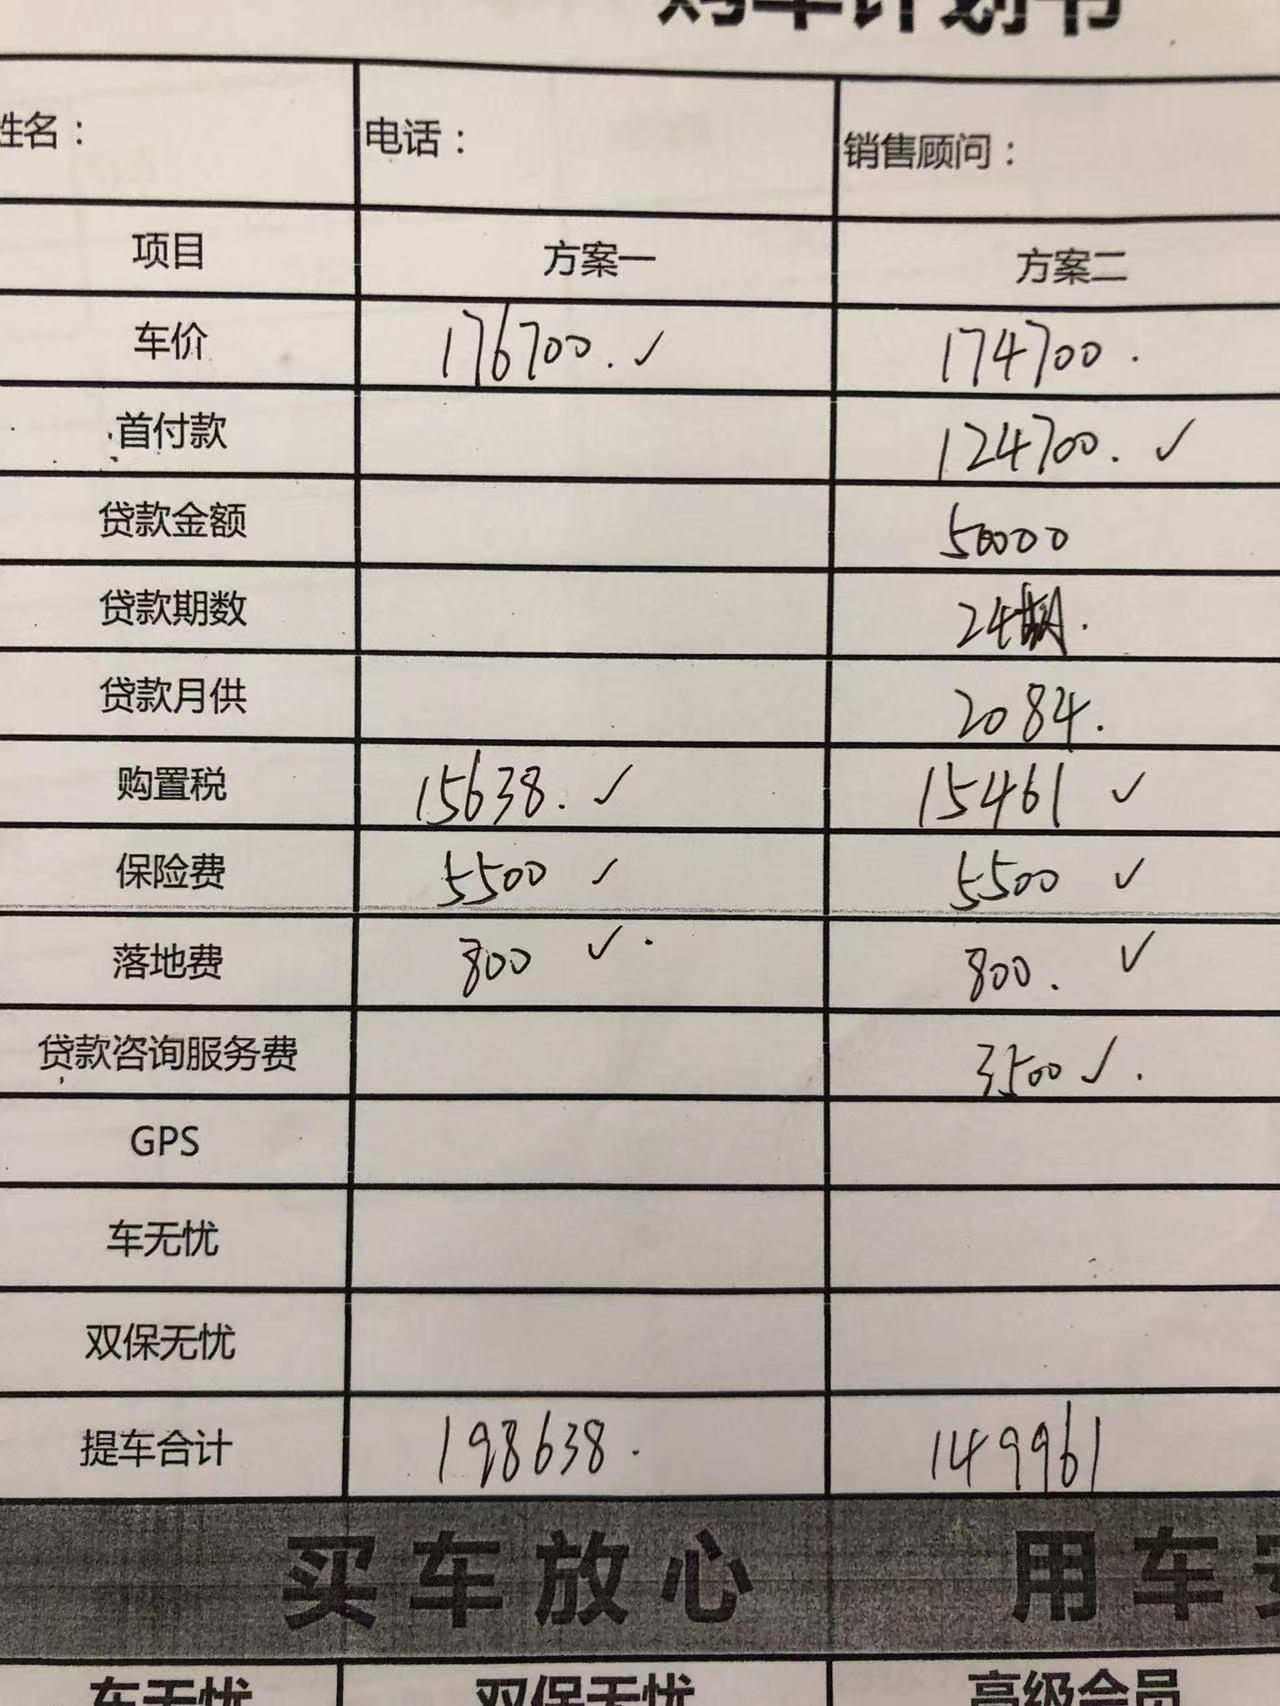 购车计划书
姓名： 电话： 销售顾问：
项目 方案一 方案二
车价 176700. ✓ 174700.
首付款 124700. ✓
贷款金额 50000
贷款期数 24期.
贷款月供 2084.
购置税 15638. ✓ 15461 ✓
保险费 5500 ✓ 5500 ✓
落地费 800 ✓. 800. ✓
贷款咨询服务费 3500 ✓.
GPS
车无忧
双保无忧
提车合计 198638. 149961
买车放心 用车安
车无忧 双保无忧 高级会员